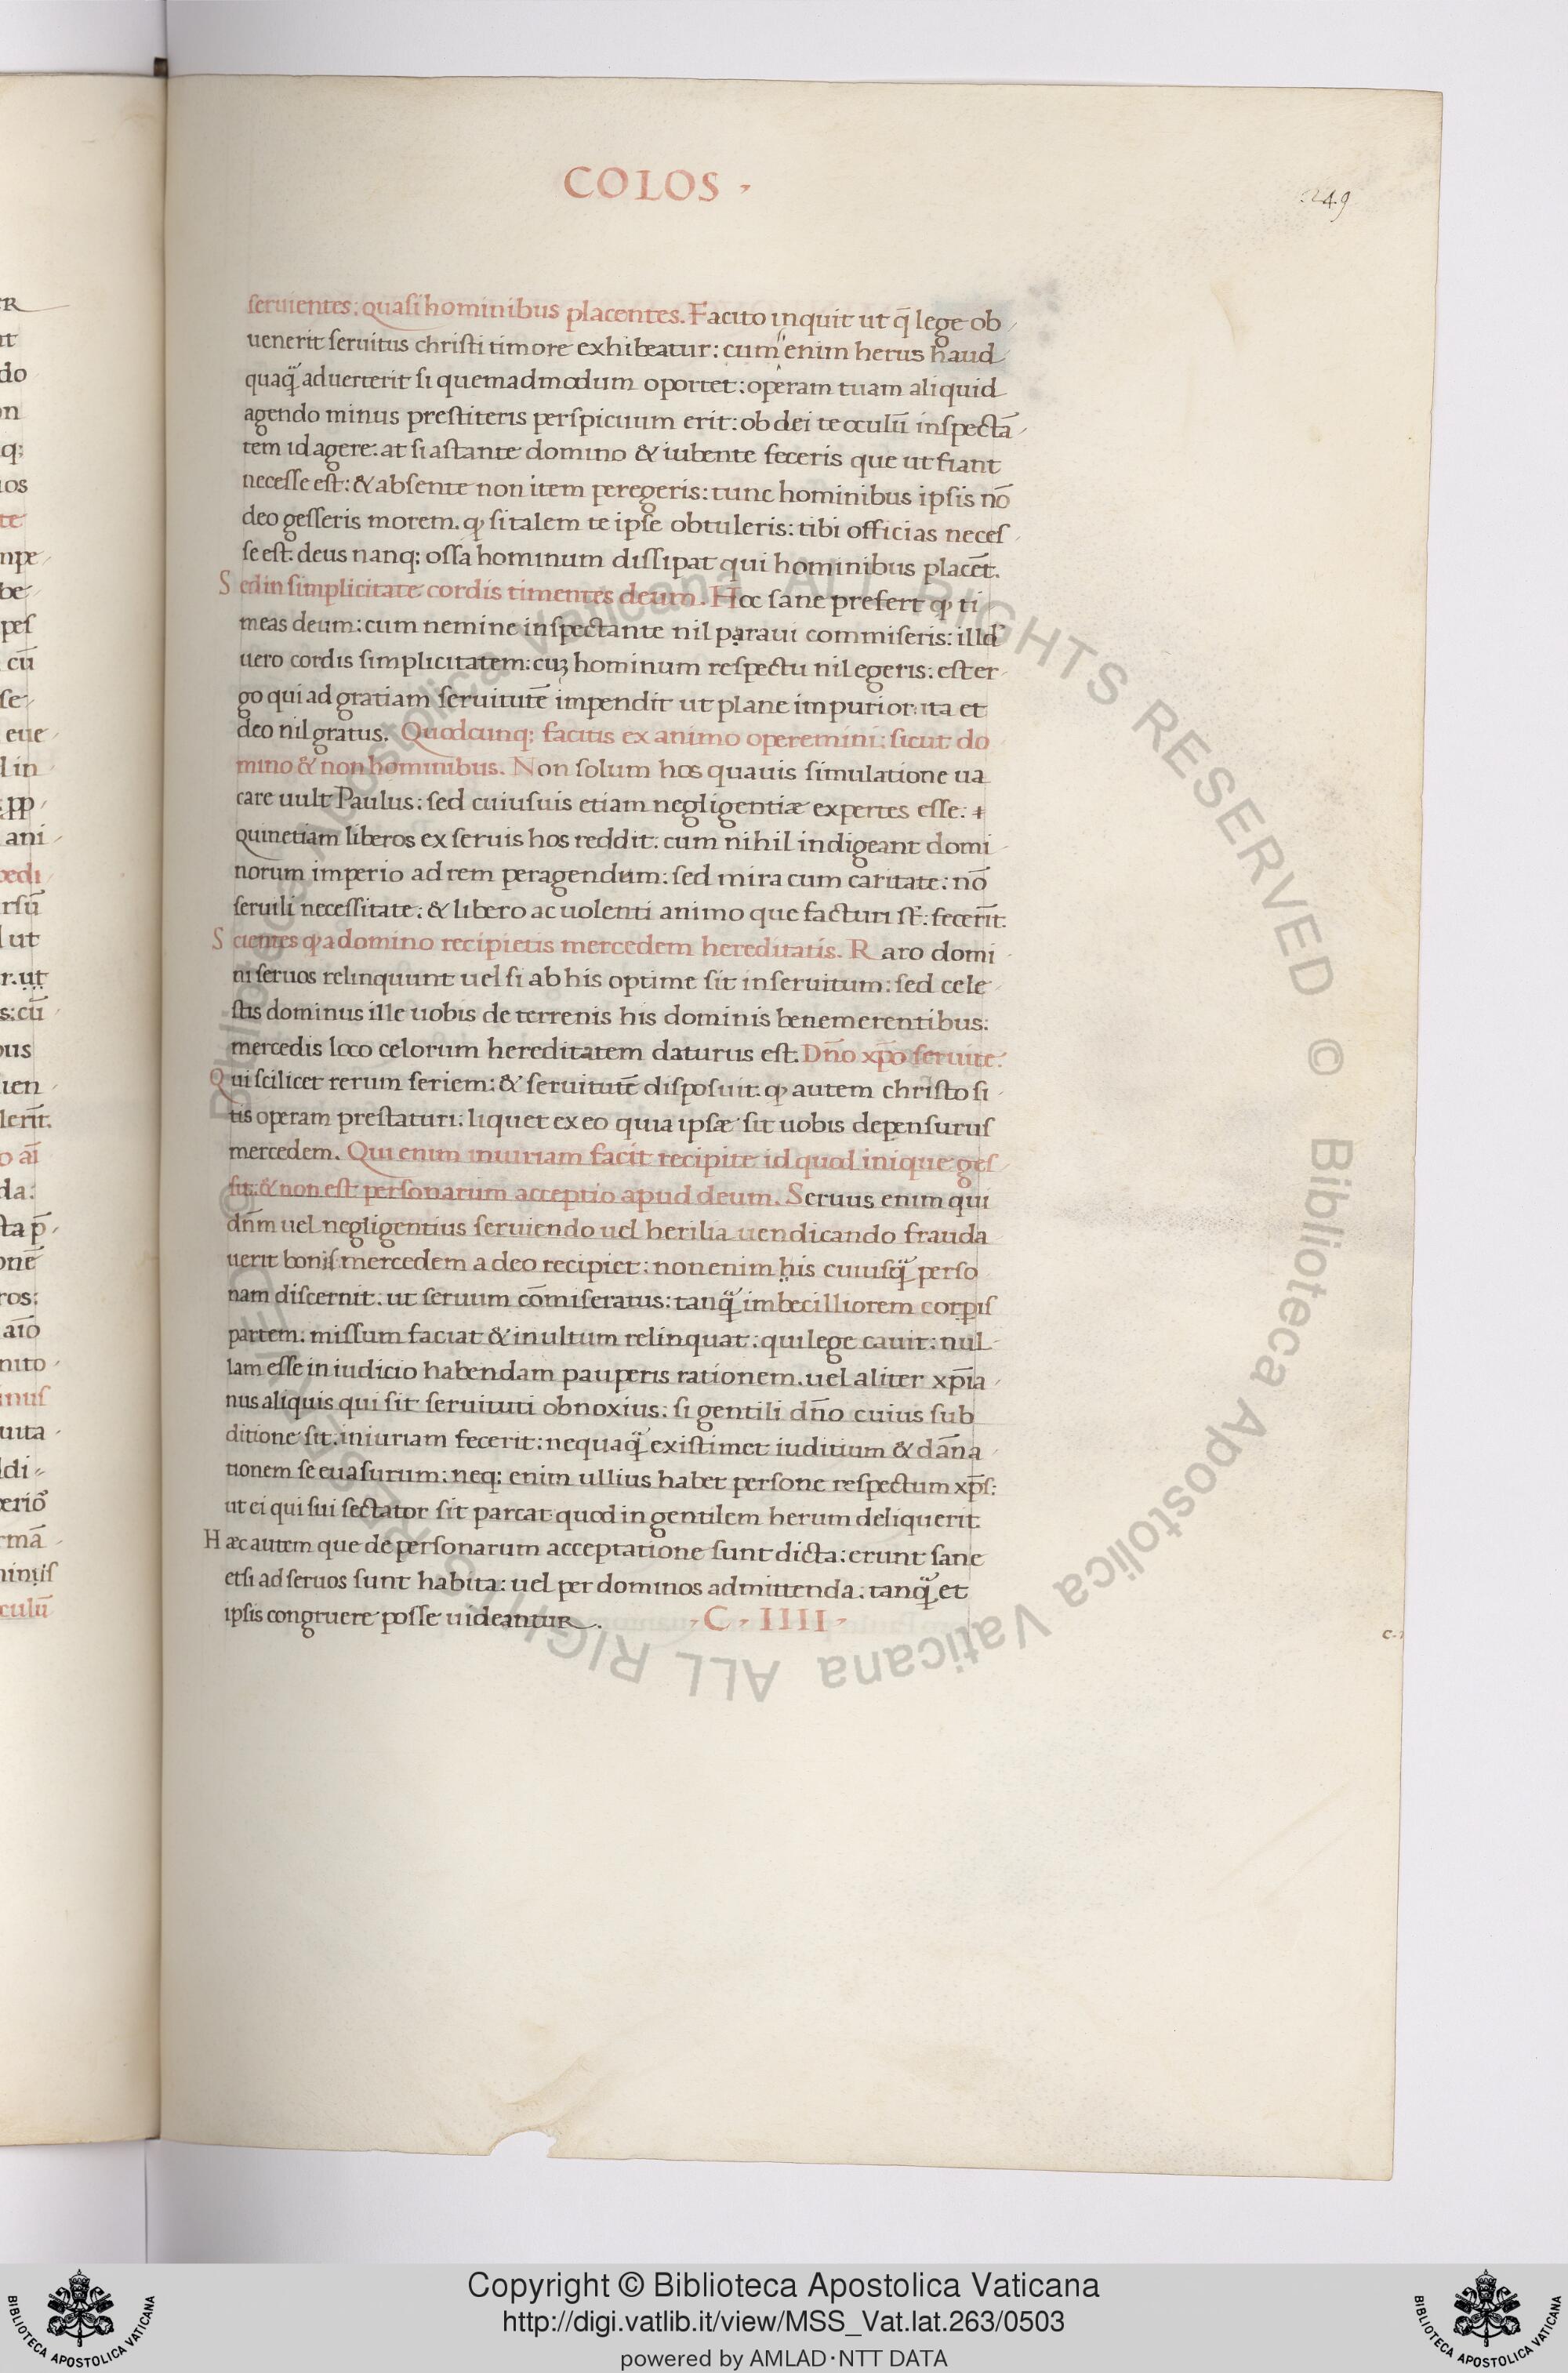 COLOS.
249
seruientes: quasi hominibus placentes. Facito inquit ut q̄ lege ob
uenerit seruitus christi timore exhibeatur: cum enim herus haud
quaq̃ aduerterit si quemadmodum oportet: operam tuam aliquid
agendo minus prestiteris perspicuum erit: ob dei te oculū inspectā
tem id agere: at si astante domino & iubente feceris que ut fiant
necesse est: & absente non item peregeris: tunc hominibus ipsis nō
deo gesseris morem. ꝙ si talem te ipse obtuleris: tibi officias neces
se est: deus nanq: ossa hominum dissipat qui hominibus placēt.
Sed in simplicitate cordis timentes deum. Hoc sane prefert ꝙ ti
meas deum: cum nemine inspectante nil paraui commiseris: illd
uero cordis simplicitatem: cuꝫ hominum respectu nil egeris: est er
go qui ad gratiam seruitutē impendit ut plane impurior: ita et
deo nil gratus. Quodcunq: facitis ex animo operemini: sicut do
mino & non hominibus. Non solum hos quauis simulatione ua
care uult Paulus: sed cuiusuis etiam negligentiæ expertes esse:
quinetiam liberos ex seruis hos reddit: cum nihil indigeant domi
norum imperio ad rem peragendum: sed mira cum caritate: nō
seruili necessitate: & libero ac uolenti animo que facturi st̄: fecerīt.
Scientes ꝙ a domino recipietis mercedem hereditatis. Raro domi
ni seruos relinquunt uel si ab his optime sit inseruitum: sed cele
stis dominus ille uobis de terrenis his dominis benemerentibus:
mercedis loco celorum hereditatem daturus est. Dn̄o xp̄o seruite.
Qui scilicet rerum seriem: & seruitutē disposuit. ꝙ autem christo si
tis operam prestaturi: liquet ex eo quia ipsæ sit uobis depensurus
mercedem. Qui enim iniuriam facit recipite id quod inique ges
sit: & non est personarum acceptio apud deum. Seruus enim qui
dn̄m uel negligentius seruiendo uel herilia uendicando frauda
uerit bonis: mercedem a deo recipiet: non enim his cuiusq̃ perso
nam discernit: ut seruum cōmiseratus: tanq̃ imbecilliorem corpis
partem. missum faciat & inultum relinquat: qui lege cauit: nul
lam esse in iudicio habendam pauperis rationem. uel aliter xp̄ia
nus aliquis qui sit seruituti obnoxius: si gentili dn̄o cuius sub
ditione sit. iniuriam fecerit: nequaq̃ existimet iuditium & dāna
tionem se euasurum: neq: enim ullius habet persone respectum xp̄s:
ut ei qui sui sectator sit parcat quod in gentilem herum deliquerit.
Hæc autem que de personarum acceptatione sunt dicta: erunt sane
etsi ad seruos sunt habita: uel per dominos admittenda: tanq̃ et
ipsis congruere posse uideantur. C. IIII.
Copyright © Biblioteca Apostolica Vaticana
http://digi.vatlib.it/view/MSS_Vat.lat.263/0503
powered by AMLAD·NTT DATA